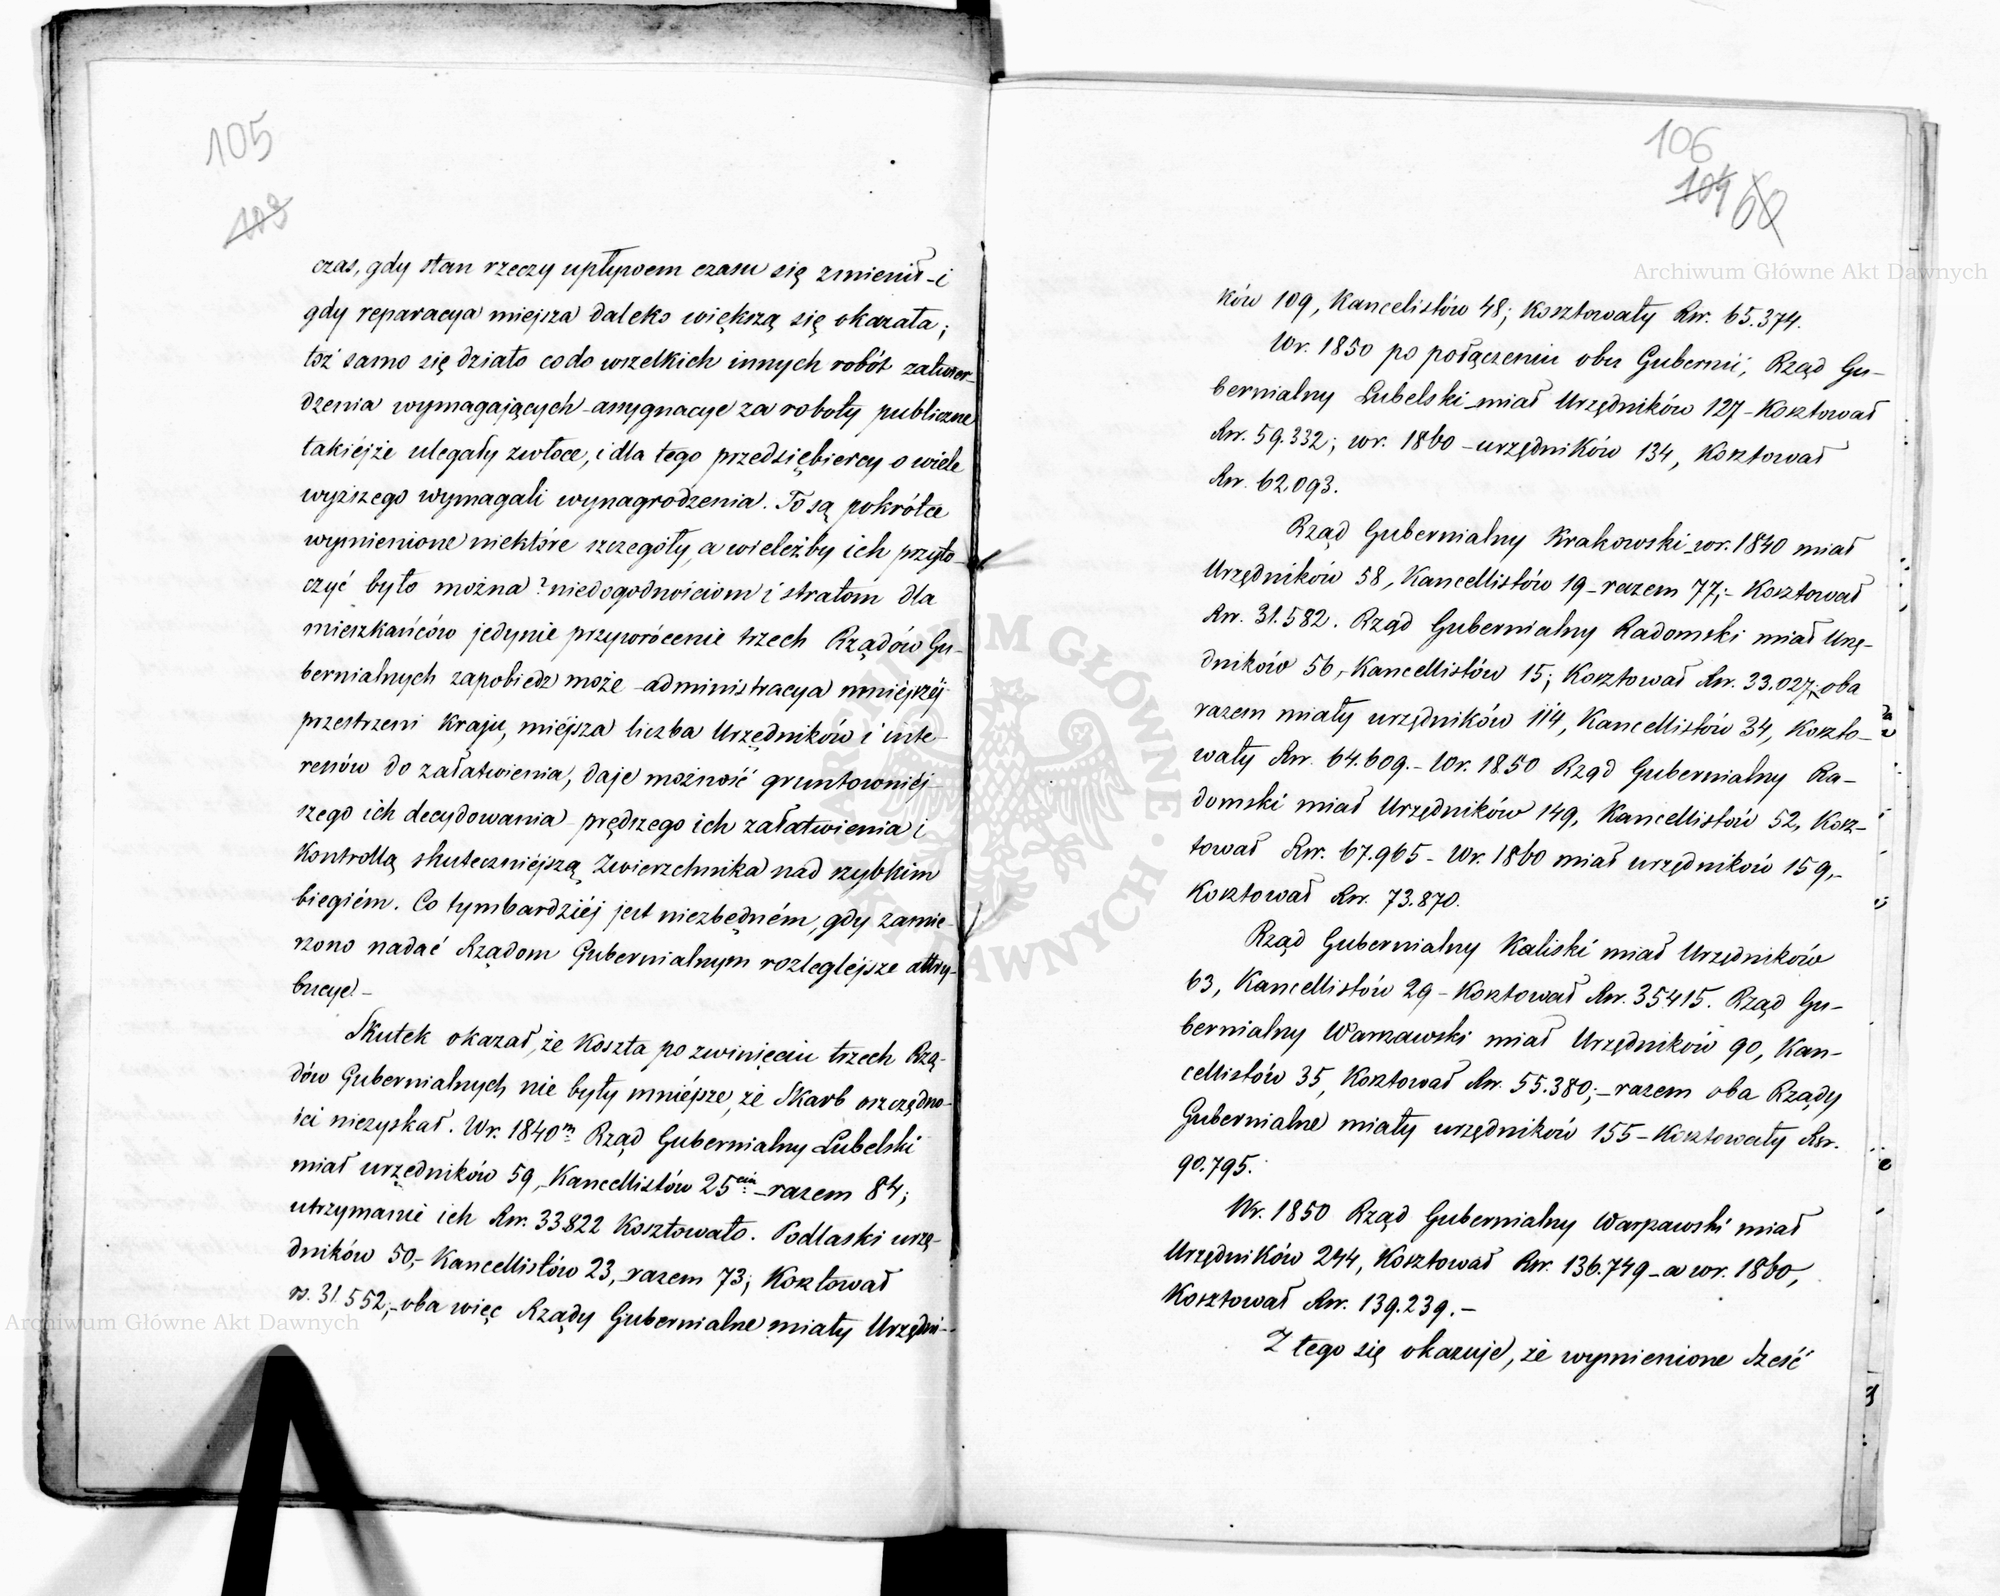 105
103
czas, gdy stan rzeczy upływem czasu się zmienił – i
gdy reparacya miejsza daleko większą się okazała;
toż samo się działo codo wszelkich innych robót zatwier-
dzenia wymagających – assygnacye za roboty publiczne
takiéjże ulegały zwłoce, i dla tego przedsiębiercy o wiele
wyższego wymagali wynagrodzenia. To są pokrótce
wymienione niektóre szczegóły, a wieleżby ich przyto-
czyć było można? niedogodnościom i stratom dla
mieszkańców jedynie przywrócenie trzech Rządów Gu-
bernialnych zapobiedz może – administracya mniéjszéj
przestrzeni Kraju, miéjsza liczba Urzędników i inte-
resów do załatwienia, daje możność gruntowniéj-
szego ich decydowania – prędszego ich załatwienia i
Kontrollą skuteczniéjszą Zwierzchnika nad szybkim
biegiém. Co tymbardziéj jest niezbędném, gdy zamie-
rzono nadać Rządom Gubernialnym rozegléjsze attry-
bucye –
Skutek okazał, że Koszta po zwinięciu trzech Rzą-
dów Gubernialnych nie były mniéjsze, że Skarb oszczędno-
ści niezyskał. Wr. 1840m Rząd Gubernialny Lubelski
miał urzędników 59, Kancellistów 25ciu – razem 84;
utrzymanie ich Rsr. 33822 Kosztowało. Podlaski urzę-
dników 50, – Kancellistów 23, razem 73; Kosztował
rs. 31.552, – oba więc Rządy Gubernialne miały Urzędni-
106
104 60
ków 109, Kancelistów 48; Kosztowały Rsr. 65.374.
Wr. 1850 po połączeniu obu Gubernii, Rząd Gu-
bernialny Lubelski miał Urzędników 127 – Kosztował
Rsr. 59.332; wr. 1860 – urzędników 134, Kosztował
Rsr. 62.093.
Rząd Gubernialny Krakowski wr. 1840 miał
Urzędników 58, Kancellistów 19 – razem 77; – Kosztował
Rsr. 31.582. Rząd Gubernialny Radomski miał Urzę-
dników 56, Kancellistów 15; Kosztował Rsr. 33.027; oba
razem miały urzędników 114, Kancellistów 34, Koszto-
wały Rsr. 64.609. – Wr. 1850 Rząd Gubernialny Ra-
domski miał Urzędników 149, Kancellistów 52, Kosz-
tował Rsr. 67.965 – Wr. 1860 miał urzędników 159, –
Kosztował Rsr. 73.870.
Rząd Gubernialny Kaliski miał Urzędników
63, Kancellistów 29 – Kosztował Rsr. 35415. Rząd Gu-
bernialny Warszawski miał Urzędników 90, Kan-
cellistów 35, Kosztował Rsr. 55.380; – razem oba Rządy
Gubernialne miały urzędników 155 – Kosztowały Rsr.
90.795.
Wr. 1850 Rząd Gubernialny Warszawski miał
Urzędników 244, Kosztował Rsr. 136.749 – a wr. 1860,
Kosztował Rsr. 139.239. –
Z tego się okazuje, że wymienione Sześć
Archiwum Główne Akt Dawnych
Archiwum Główne Akt Dawnych
ARCHIWUM GŁÓWNE AKT DAWNYCH